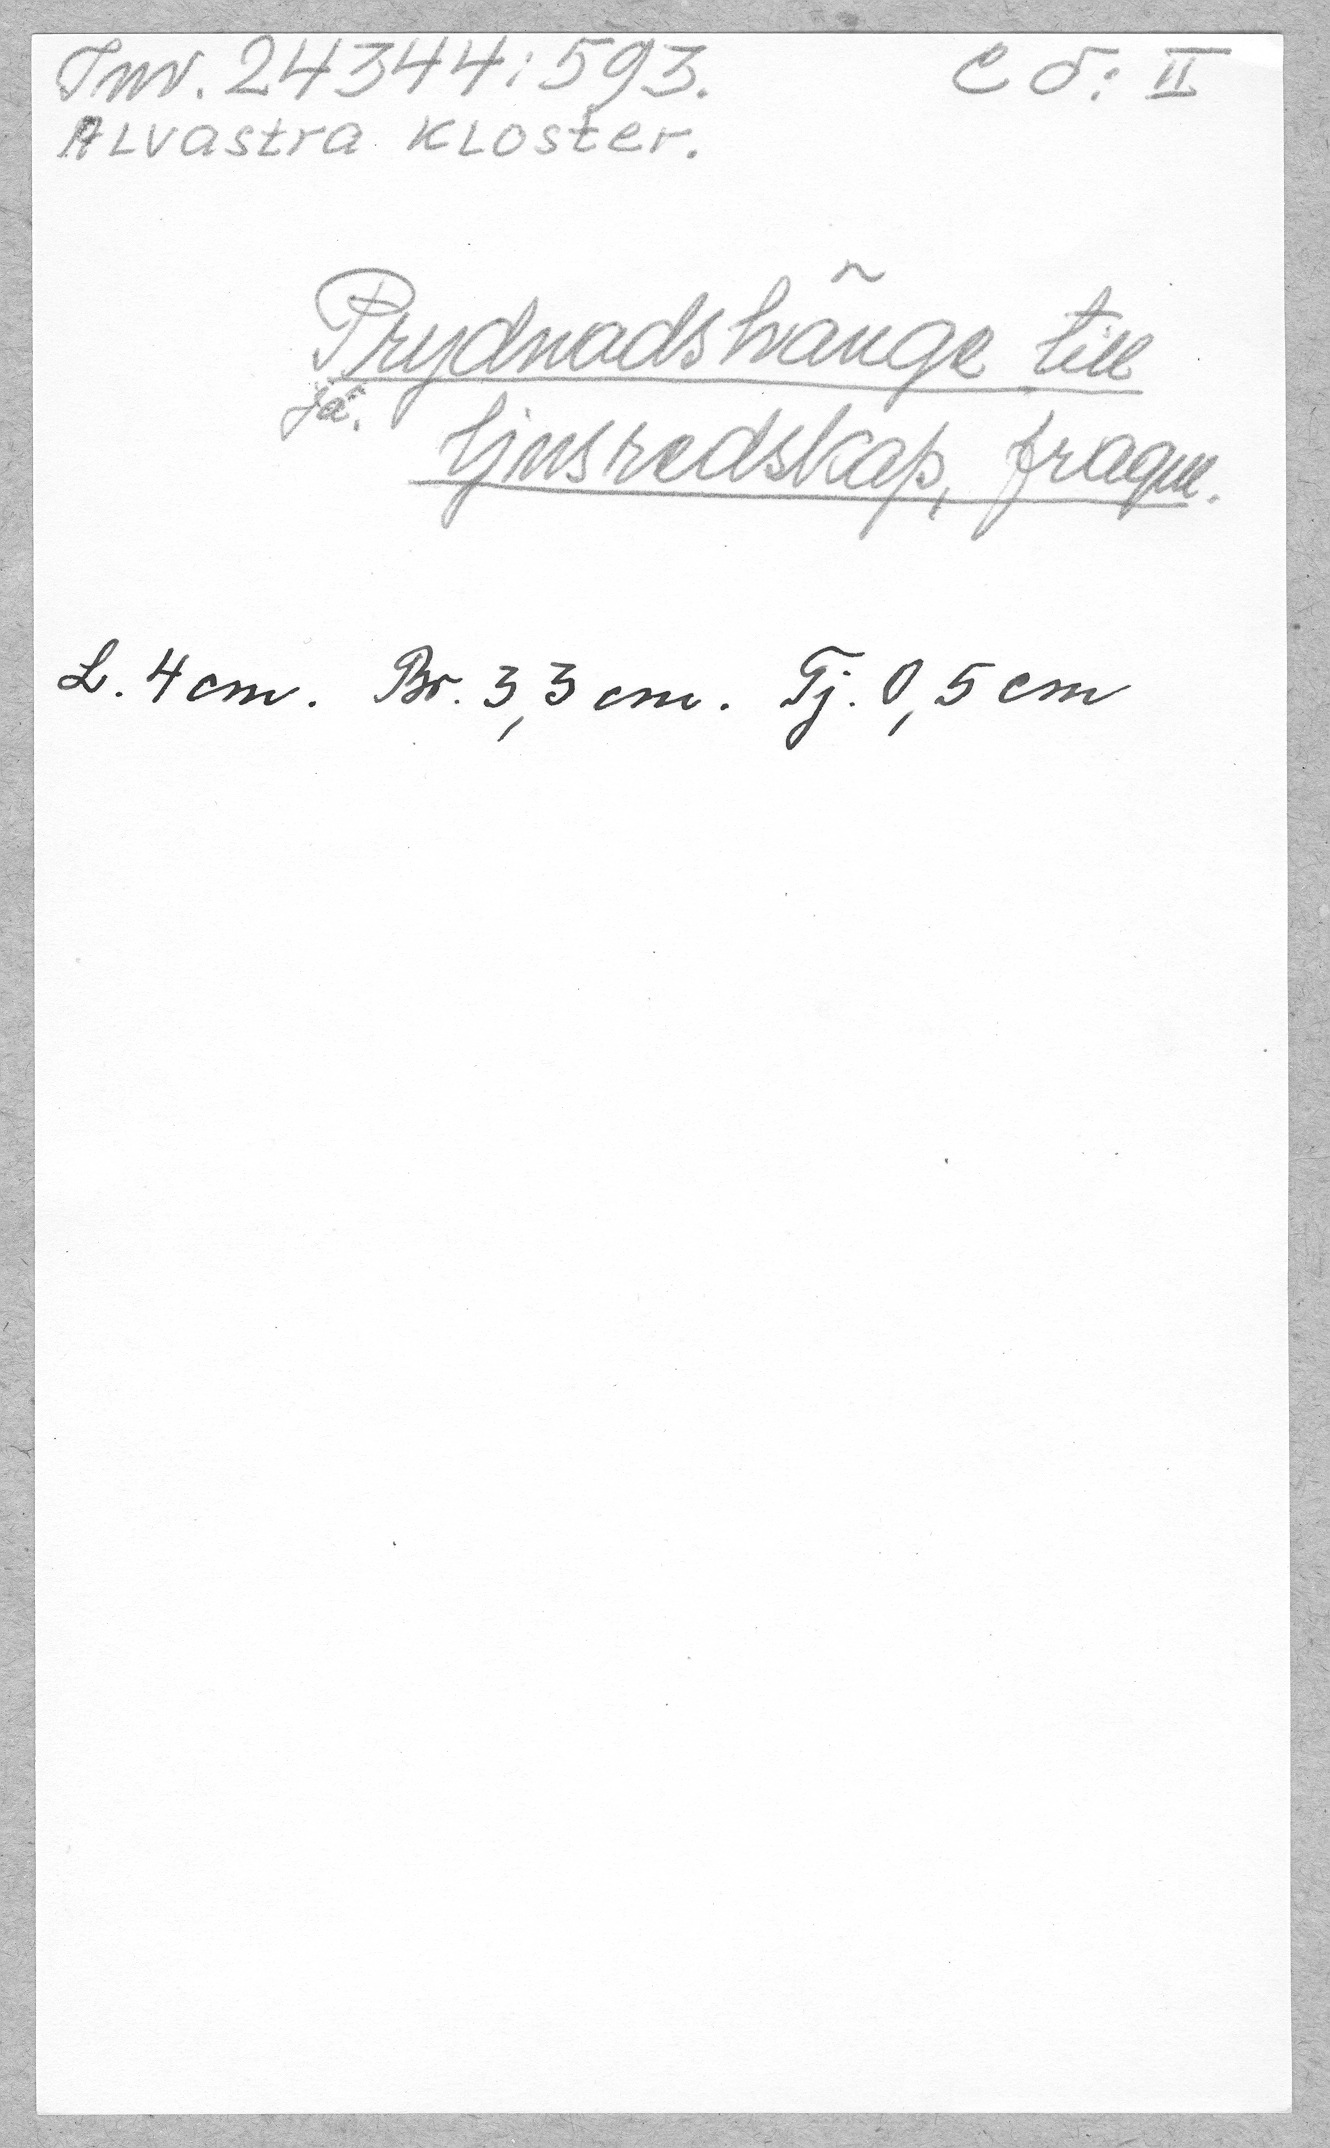 Inv. 24344:593. C Ö: II
Alvastra Kloster.
Prydnadshänge till
jä.
ljusredskap, fragm.
L. 4 cm. Br. 3,3 cm. Tj. 0,5 cm